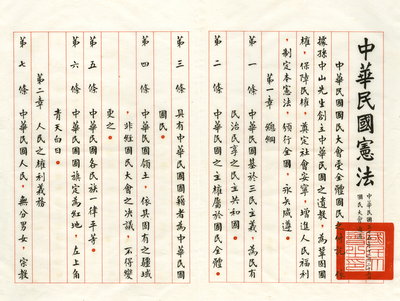 中華民國憲法
中華民國
國民大會
中華民國國民大會受全體國民之付託,依
據孫中山先生創立中華民國之遺教,為鞏固國
權,保障民權,奠定社會安寧,增進人民福利
,制定本憲法,頒行全國,永矢咸遵。
第一章 總綱
第一條 中華民國基於三民主義,為民有
民治民享之民主共和國。
第二條 中華民國之主權屬於國民全體。
第三條 具有中華民國國籍者為中華民國
國民。
第四條 中華民國領土,依其固有之疆域
,非經國民大會之決議,不得變
更之。
第五條 中華民國各民族一律平等。
第六條 中華民國國旗定為紅地,左上角
青天白日。
第二章 人民之權利義務
第七條 中華民國人民,無分男女,宗教